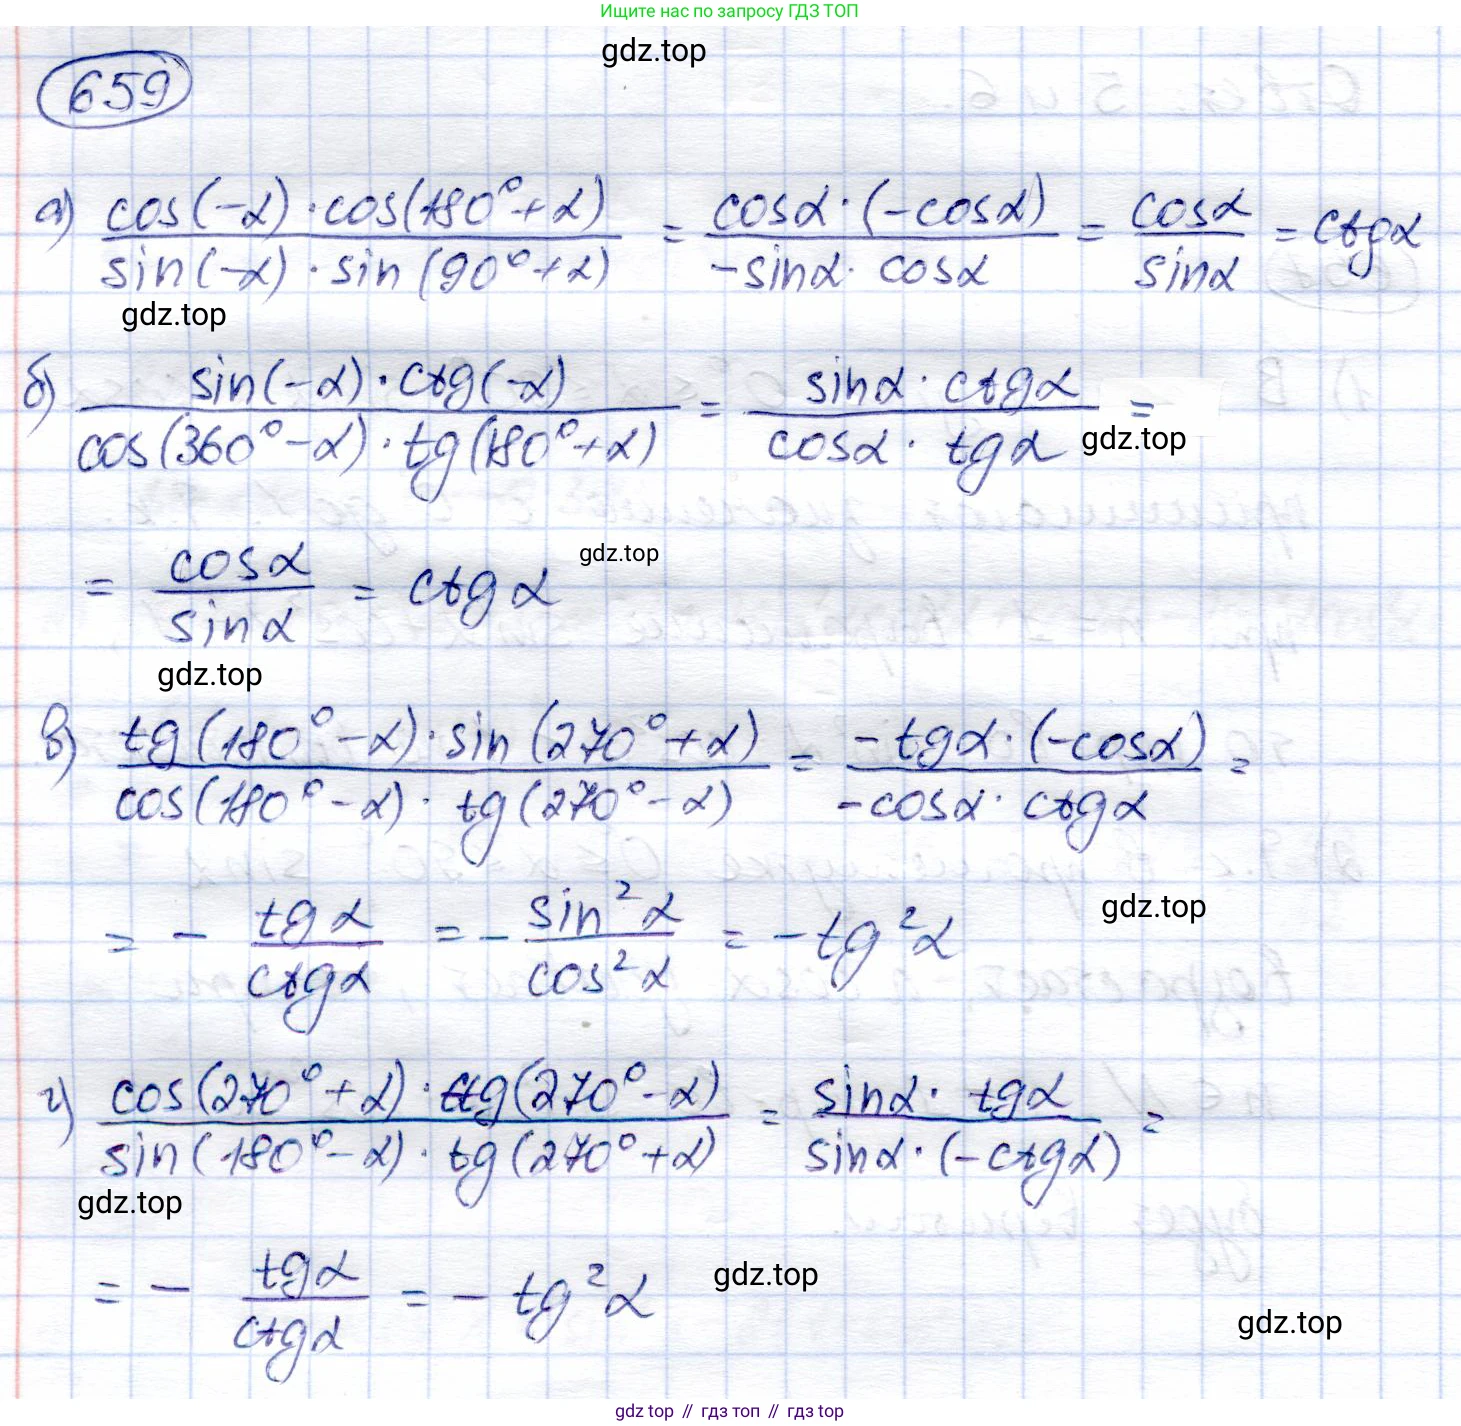 Ищите нас по запросу ГДЗ ТОП
gdz.top
659
а) cos(-α)·cos(180°+α) / sin(-α)·sin(90°+α) = cosα·(-cosα) / -sinα·cosα = cosα / sinα = ctgα
gdz.top
б) sin(-α)·ctg(-α) / cos(360°-α)·tg(180°+α) = sinα·ctgα / cosα·tgα =
gdz.top
= cosα / sinα = ctgα
gdz.top
gdz.top
в) tg(180°-α)·sin(270°+α) / cos(180°-α)·tg(270°-α) = -tgα·(-cosα) / -cosα·ctgα =
= - tgα / ctgα = - sin²α / cos²α = -tg²α
gdz.top
г) cos(270°+α)·ctg(270°-α) / sin(180°-α)·tg(270°+α) = sinα·tgα / sinα·(-ctgα) =
gdz.top
= - tgα / ctgα = - tg²α
gdz.top
gdz.top
gdz top // гдз топ // гдз top